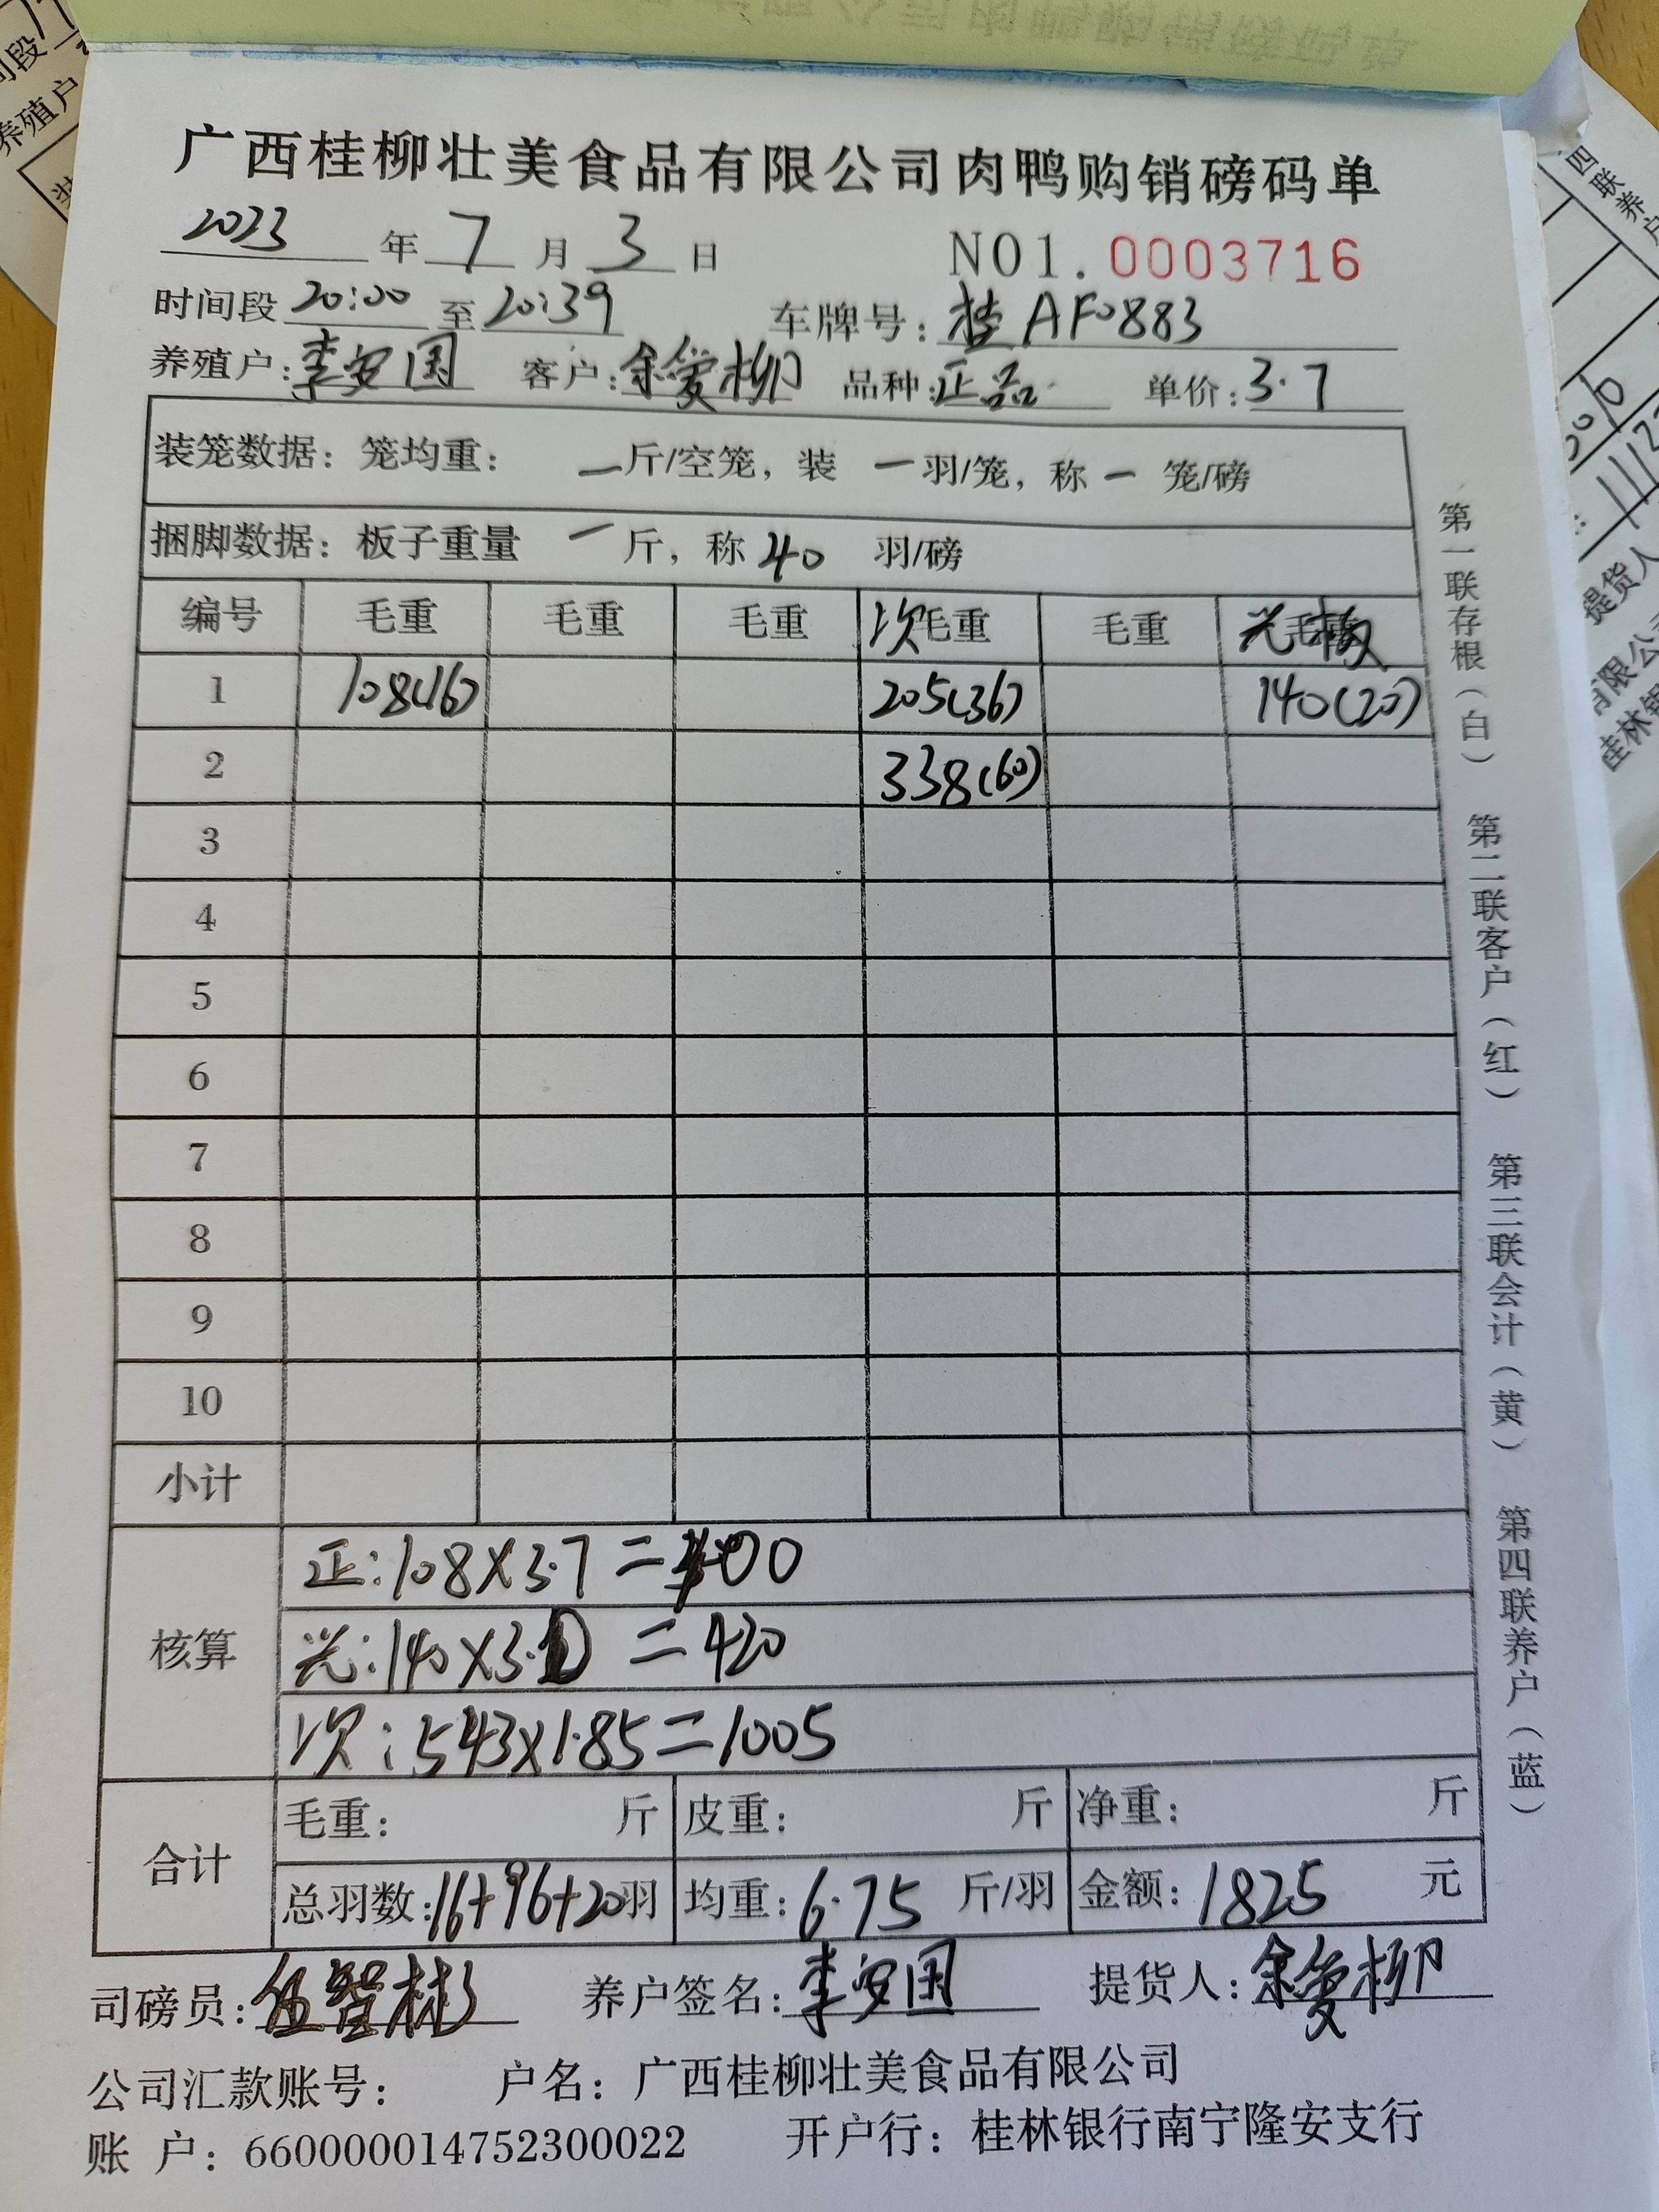 广西桂柳壮美食品有限公司肉鸭购销磅码单
2023 年 7 月 3 日 NO1.0003716
时间段 20:00 至 20:39 车牌号: 桂AF0883
养殖户: 李安国 客户: 余爱柳 品种: 正品 单价: 3.7
装笼数据: 笼均重: — 斤/空笼, 装 — 羽/笼, 称 — 笼/磅
捆脚数据: 板子重量 — 斤, 称 40 羽/磅
编号 毛重 毛重 毛重 次 毛重 毛重 毛重
1 108(16) 205(36) 140(20)
2 338(60)
3
4
5
6
7
8
9
10
小计
核算
正:108×3.7=400
光:140×3.0=420
次:543×1.85=1005
合计
毛重: 斤 皮重: 斤 净重: 斤
总羽数: 16+96+20 羽 均重: 6.75 斤/羽 金额: 1825 元
司磅员: 伍智彬 养户签名: 李安国 提货人: 余爱柳
公司汇款账号: 户名: 广西桂柳壮美食品有限公司
账 户: 660000014752300022 开户行: 桂林银行南宁隆安支行
第一联存根(白) 第二联客户(红) 第三联会计(黄) 第四联养户(蓝)
养殖户
四联养户
提货人
有限公
桂林银